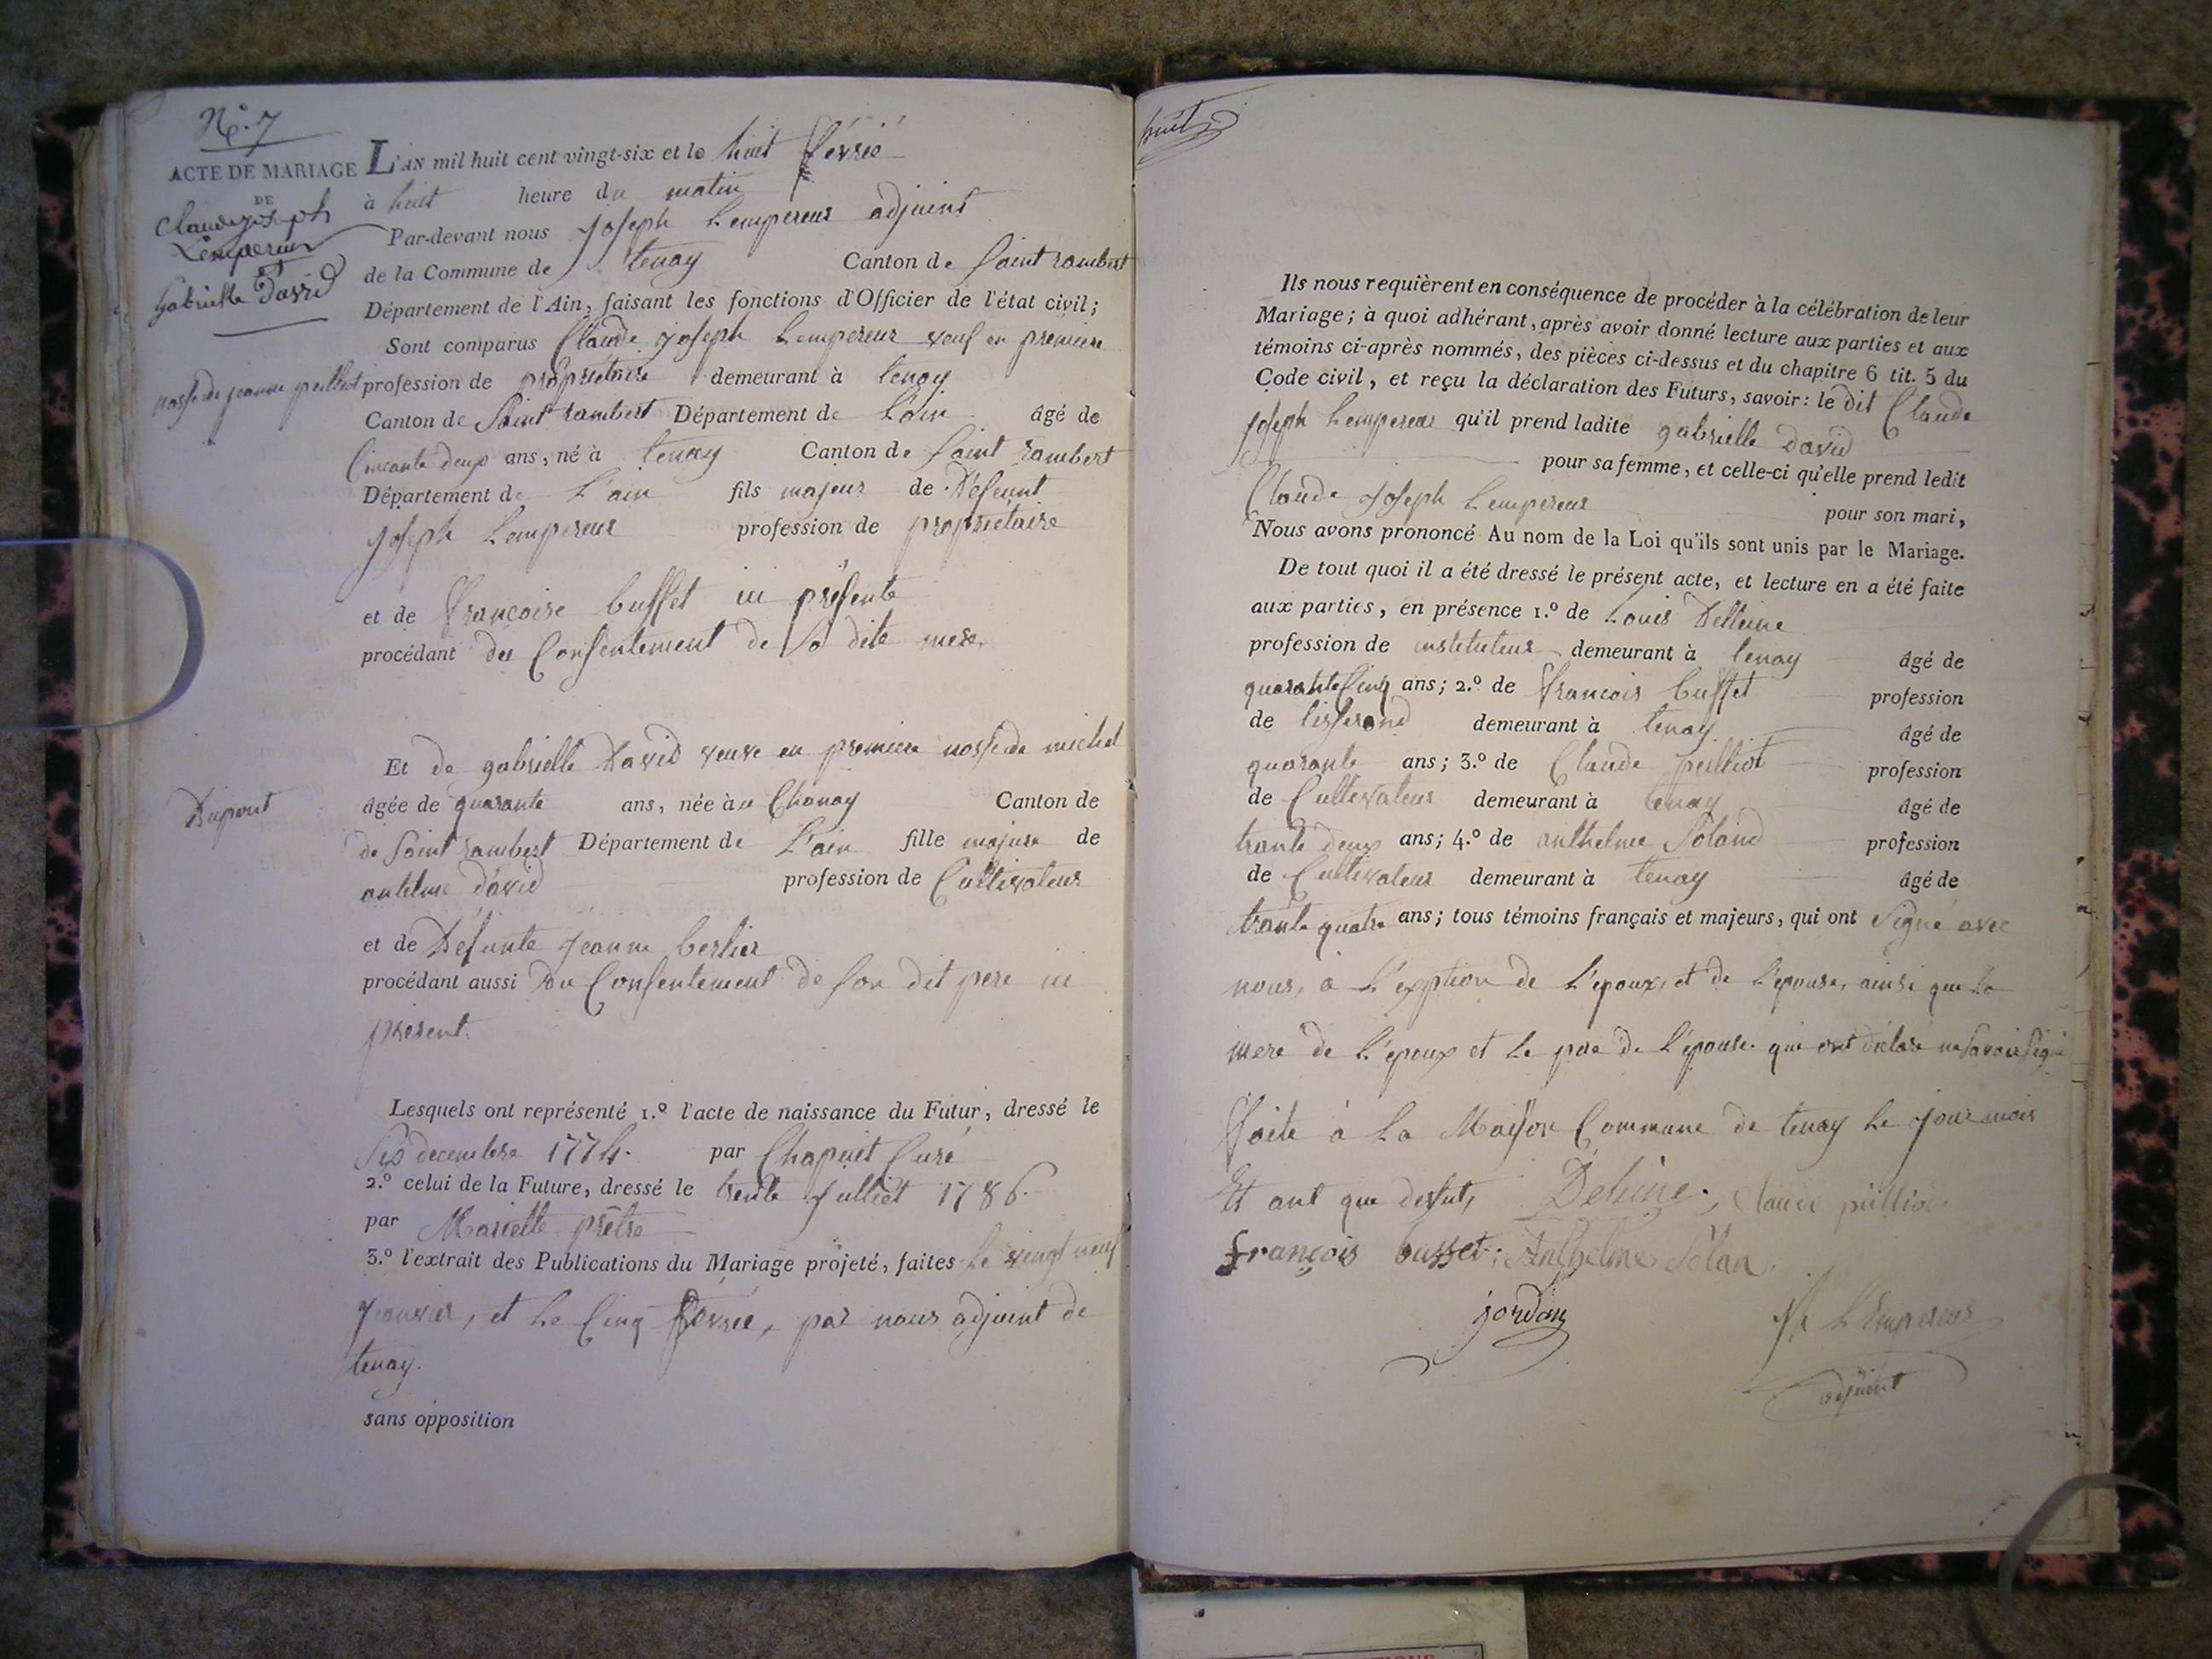 N.° 7
ACTE DE MARIAGE
DE
Claude joseph
Lempereur
et
gabrielle David
L'AN mil huit cent vingt-six et le huit févrié
à huit heure du matin
Par-devant nous Joseph Lempereur adjoint
de la Commune de tenay Canton de Saint rambert
Département de l'Ain, faisant les fonctions d'Officier de l'état civil;
Sont comparus Claude joseph Lempereur veuf en premiere
nosse de jeanne peilliot profession de propriétaire demeurant à tenay
Canton de Saint rambert Département de L'ain âgé de
Cincante deux ans, né à tenay Canton de Saint rambert
Département de L'ain fils majeur de Défeunt
joseph Lempereur profession de propriétaire
et de francoise buffet ici présente
procédant du Consentement de Sa dite mere
Et de gabrielle David veuve en premiere nosse de michel
Dupont
âgée de quarante ans, née à Chanay Canton de
de Saint rambert Département de L'ain fille majure de
antelme david profession de Cultivateur
et de Défunte jeanne berlier
procédant aussi du Consentement de son dit pere ici
présent.
Lesquels ont représenté 1.° l'acte de naissance du Futur, dressé le
Six decembre 1774. par Chapuit Curé
2.° celui de la Future, dressé le trente julliet 1786.
par Mariette prêtre
3.° l'extrait des Publications du Mariage projeté, faites le vingt neuf
janvier, et le Cinq fevrié, par nous adjoint de
tenay.
sans opposition
huit
Ils nous requièrent en conséquence de procéder à la célébration de leur
Mariage; à quoi adhérant, après avoir donné lecture aux parties et aux
témoins ci-après nommés, des pièces ci-dessus et du chapitre 6 tit. 5 du
Code civil, et reçu la déclaration des Futurs, savoir: le dit Claude
joseph Lempereur qu'il prend ladite gabrielle David
pour sa femme, et celle-ci qu'elle prend ledit
Claude joseph Lempereur pour son mari,
Nous avons prononcé Au nom de la Loi qu'ils sont unis par le Mariage.
De tout quoi il a été dressé le présent acte, et lecture en a été faite
aux parties, en présence 1.° de Louis
profession de instituteur demeurant à tenay âgé de
quarante Cinq ans; 2.° de francois buffet profession
de tisserand demeurant à tenay âgé de
quarante ans; 3.° de Claude peilliot profession
de Cultivateur demeurant à tenay âgé de
trante deux ans; 4.° de anthelme Soland profession
de Cultivateur demeurant à tenay âgé de
trante quatre ans; tous témoins français et majeurs, qui ont Signé avec
nous, à l'exption de l'époux, et de l'épouse, ainsi que la
mere de l'époux et le pere de l'épouse qui ont déclaré ne savoir signé
faite à la Maison Commune de tenay le jour mois
Et ant que dessut,
claude peilliot
françois buffet; Anthelme Solan
jordan
L'Empereur
adjoint